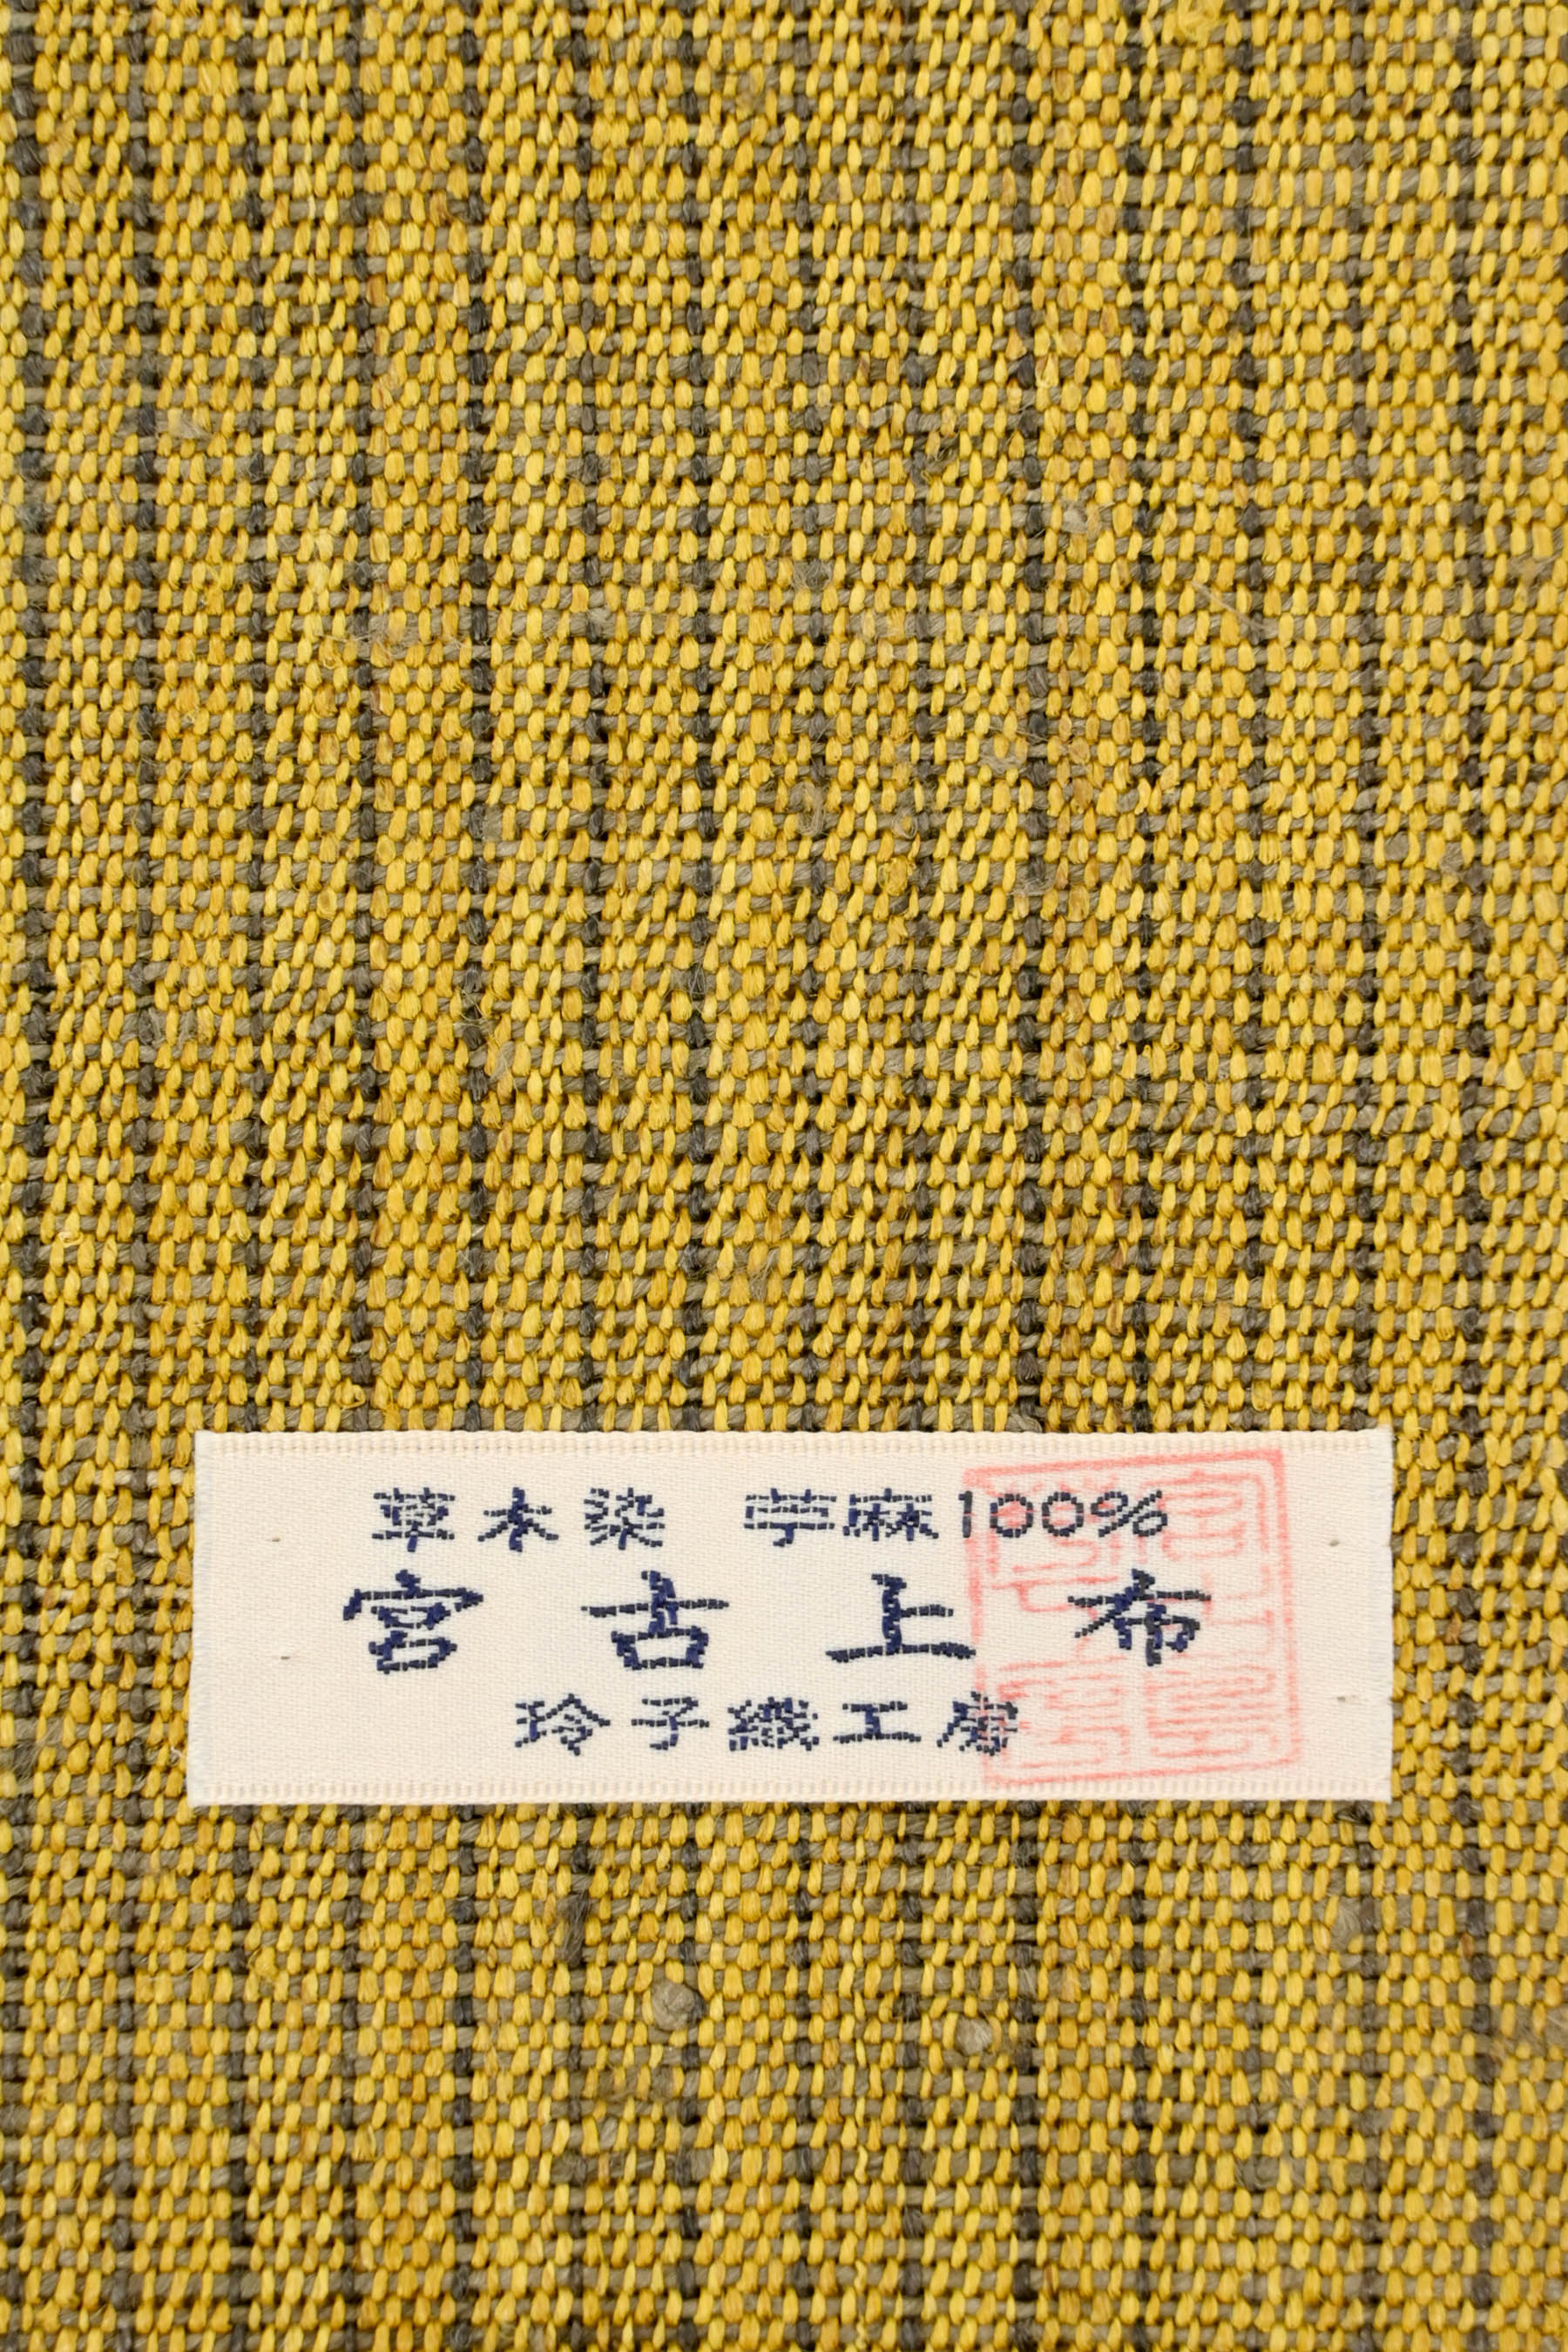 草木染 苧麻100%
宮古上布
玲子織工房